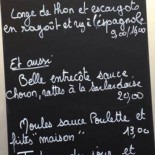 Longe de thon et escargots
en ragoût et riz l'espagnole
9,00/16,00
Et aussi
Belle entrecôte sauce
choron, rattes à la sarladaise
20,00
Moules sauce Poulette et
frites maison"
13,00